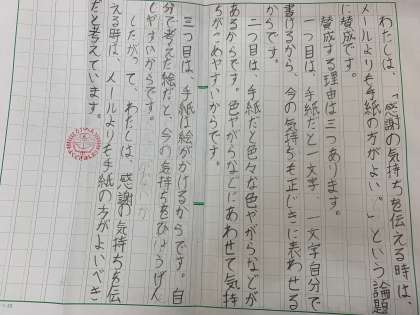 わたしは、「感謝の気持ちを伝える時は、
メールよりも手紙の方がよい。」という論題
に賛成です。
賛成する理由は三つあります。
一つ目は、手紙だと一文字一文字自分で
書けるから、今の気持ちも正じきに表わせる
からです。
二つ目は、手紙だと色々な色やがらなどが
あるからです。色やがらなどにあわせて気持
ちがこめやすいからです。
三つ目は、手紙は絵がかけるからです。自
分で考えた絵だと、今の気持ちをひょうげん
しやすいからです。
したがって、わたしは、感謝の気持ちを伝
える時は、メールよりも手紙の方がよいべき
だと考えています。